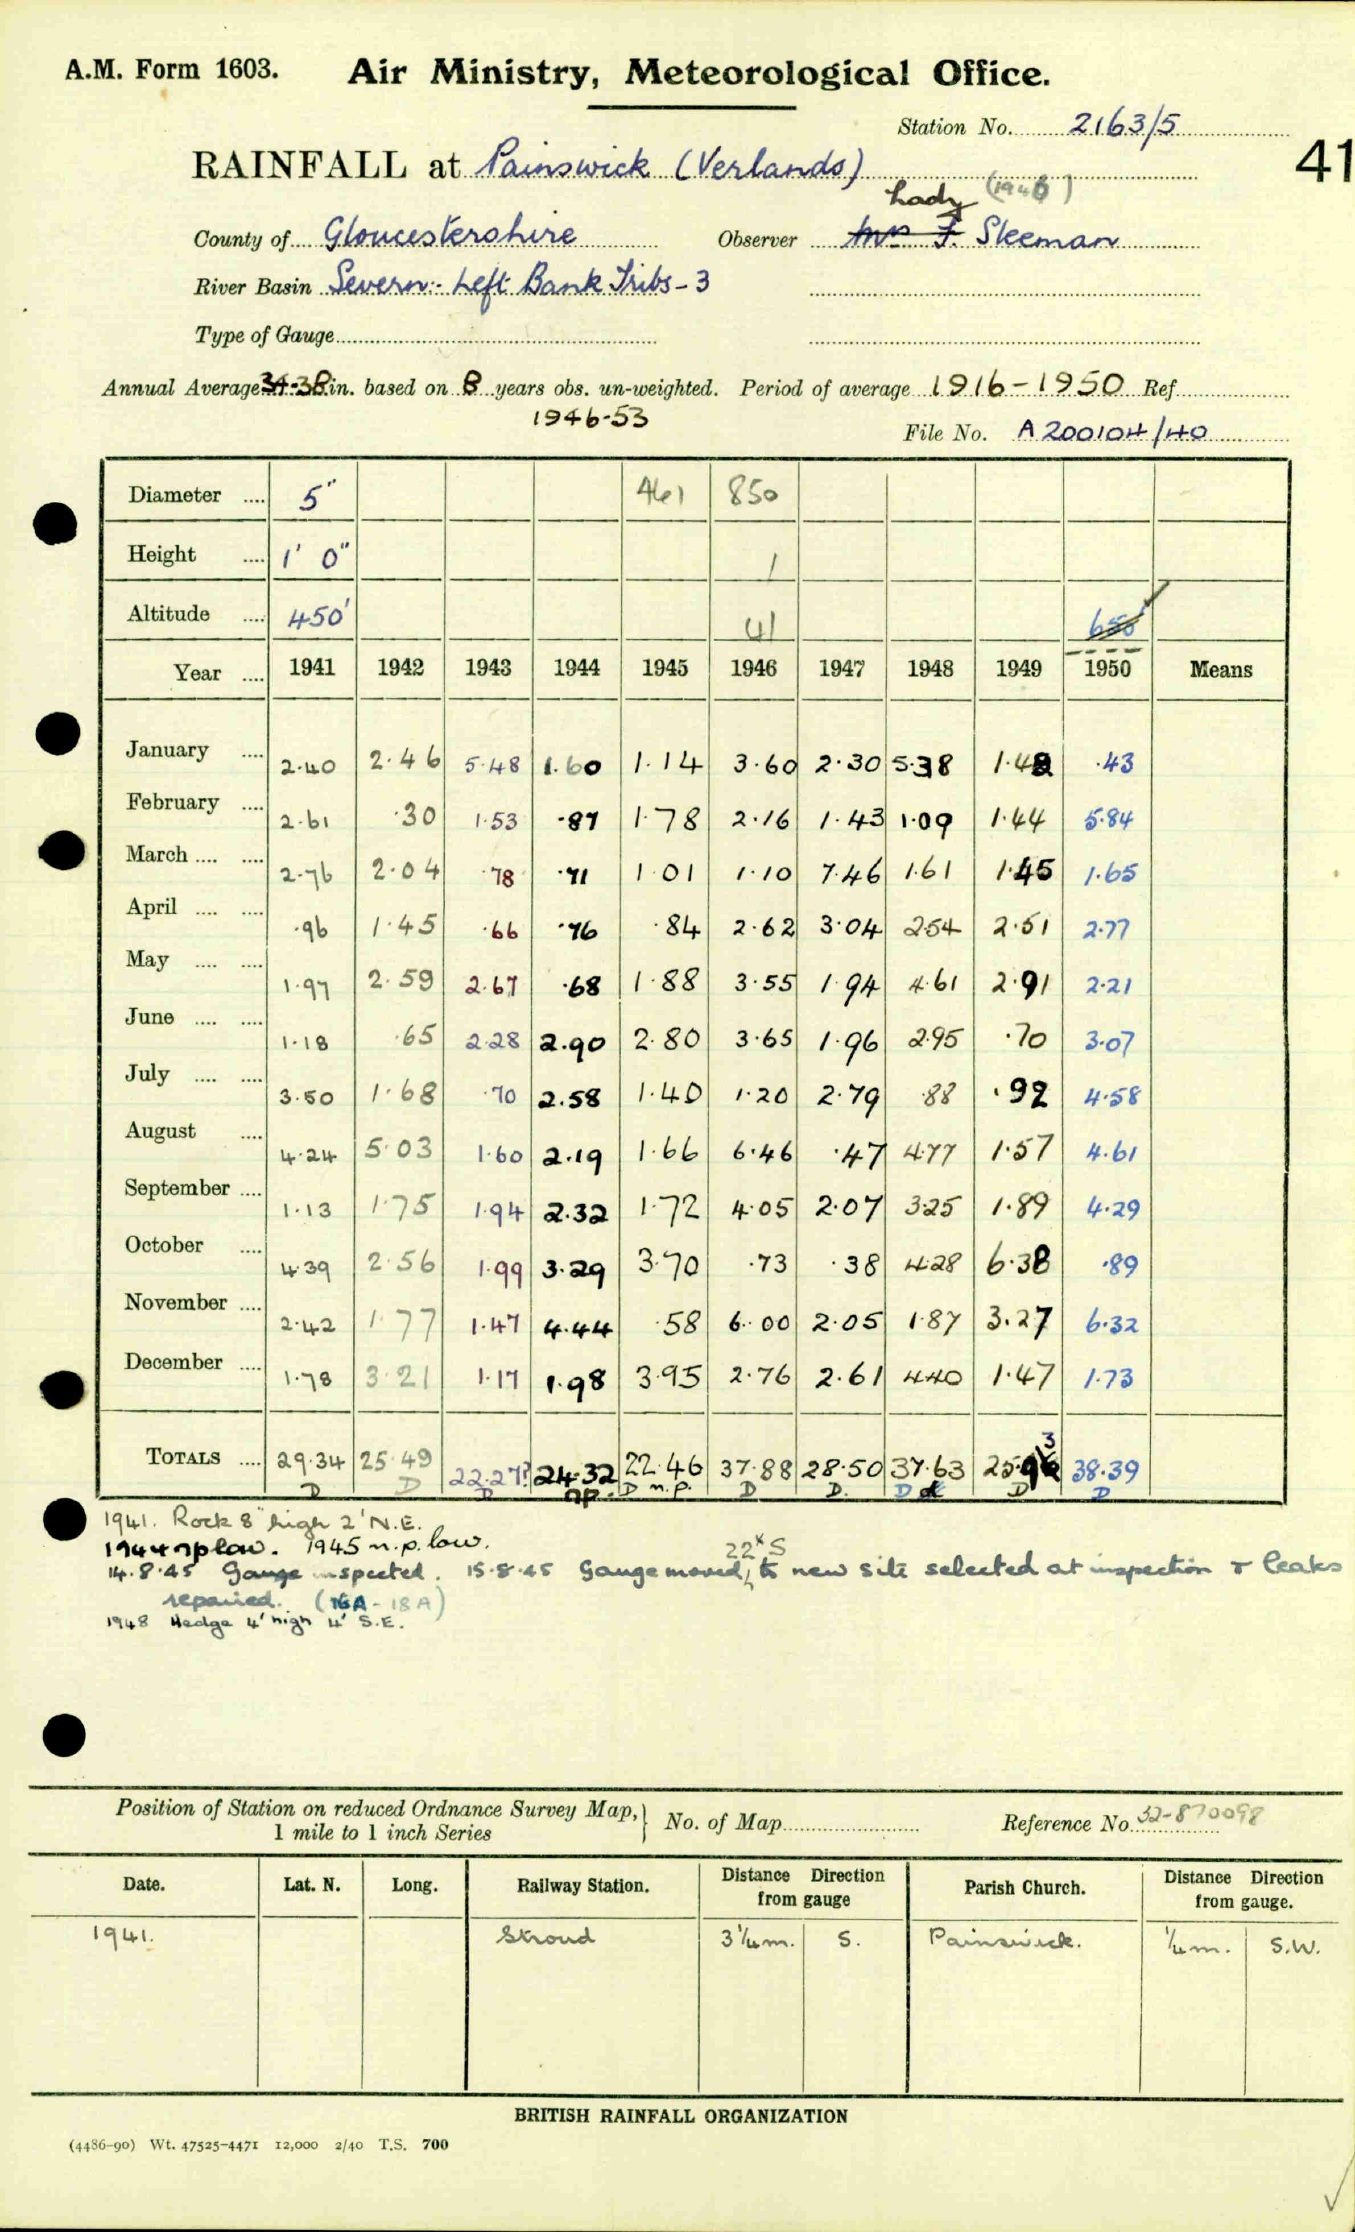 A.M. Form 1603. Air Ministry, Meteorological Office.
Station No. 2163/5
41
RAINFALL at Painswick (Verlands)
Lady (1946)
County of Gloucestershire Observer Mrs F. Sleeman
River Basin Severn:- Left Bank Tribs - 3
Type of Gauge
Annual Average 34.38 in. based on 8 years obs. un-weighted. Period of average 1916-1950 Ref
1946-53
File No. A200104/40
Diameter .... 5" 461 850
Height .... 1' 0" 1
Altitude .... 450' 41 650
Year .... 1941 1942 1943 1944 1945 1946 1947 1948 1949 1950 Means
January .... 2.40 2.46 5.48 1.60 1.14 3.60 2.30 5.38 1.42 .43
February .... 2.61 .30 1.53 .87 1.78 2.16 1.43 1.09 1.44 5.84
March .... .... 2.76 2.04 .78 .71 1.01 1.10 7.46 1.61 1.45 1.65
April .... .... .96 1.45 .66 .76 .84 2.62 3.04 2.54 2.51 2.77
May .... .... 1.97 2.59 2.67 .68 1.88 3.55 1.94 4.61 2.91 2.21
June .... .... 1.18 .65 2.28 2.90 2.80 3.65 1.96 2.95 .70 3.07
July .... .... 3.50 1.68 .70 2.58 1.40 1.20 2.79 .88 .92 4.58
August .... 4.24 5.03 1.60 2.19 1.66 6.46 .47 4.77 1.57 4.61
September .... 1.13 1.75 1.94 2.32 1.72 4.05 2.07 3.25 1.89 4.29
October .... 4.39 2.56 1.99 3.29 3.70 .73 .38 4.28 6.38 .89
November .... 2.42 1.77 1.47 4.44 .58 6.00 2.05 1.87 3.27 6.32
December .... 1.78 3.21 1.17 1.98 3.95 2.76 2.61 4.40 1.47 1.73
TOTALS .... 29.34 25.49 22.27? 24.32 22.46 37.88 28.50 37.63 25.93 38.39
D D D np. D n.p. D D. D D D
1941. Rock 8" high 2' N.E.
1944 np low. 1945 n.p. low.
22x S
14.8.45 Gauge inspected. 15.8.45 Gauge moved, to new site selected at inspection & leaks
repaired. (16A - 18A)
1948 Hedge 4' high 4' S.E.
Position of Station on reduced Ordnance Survey Map, No. of Map Reference No. 32-870098
1 mile to 1 inch Series
Date. Lat. N. Long. Railway Station. Distance Direction from gauge Parish Church. Distance Direction from gauge.
1941. Stroud 3¼m. S. Painswick. ¼m. S.W.
BRITISH RAINFALL ORGANIZATION
(4486-90) Wt. 47525-4471 12,000 2/40 T.S. 700